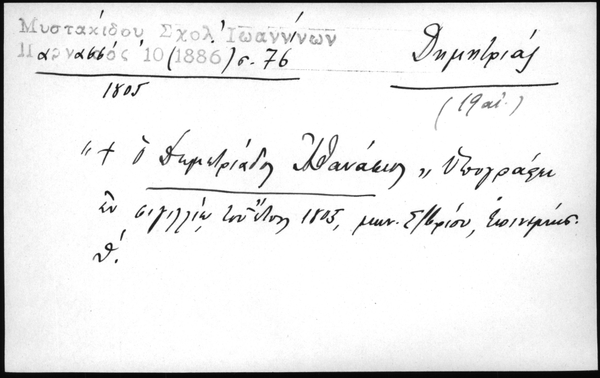 Μυστακίδου Σχολ. Ἰωαννίνων
Παρνασσός 10 (1886) σ. 76
1805
Δημητριάς
(19 αἰ.)
"+ ὁ Δημητριάδος Ἀθανάσιος" ὑπογράφει
ἐν σιγιλλίῳ τοῦ ἔτους 1805, μην. Σ/βρίου, ἐπινεμήσ.
θ΄.